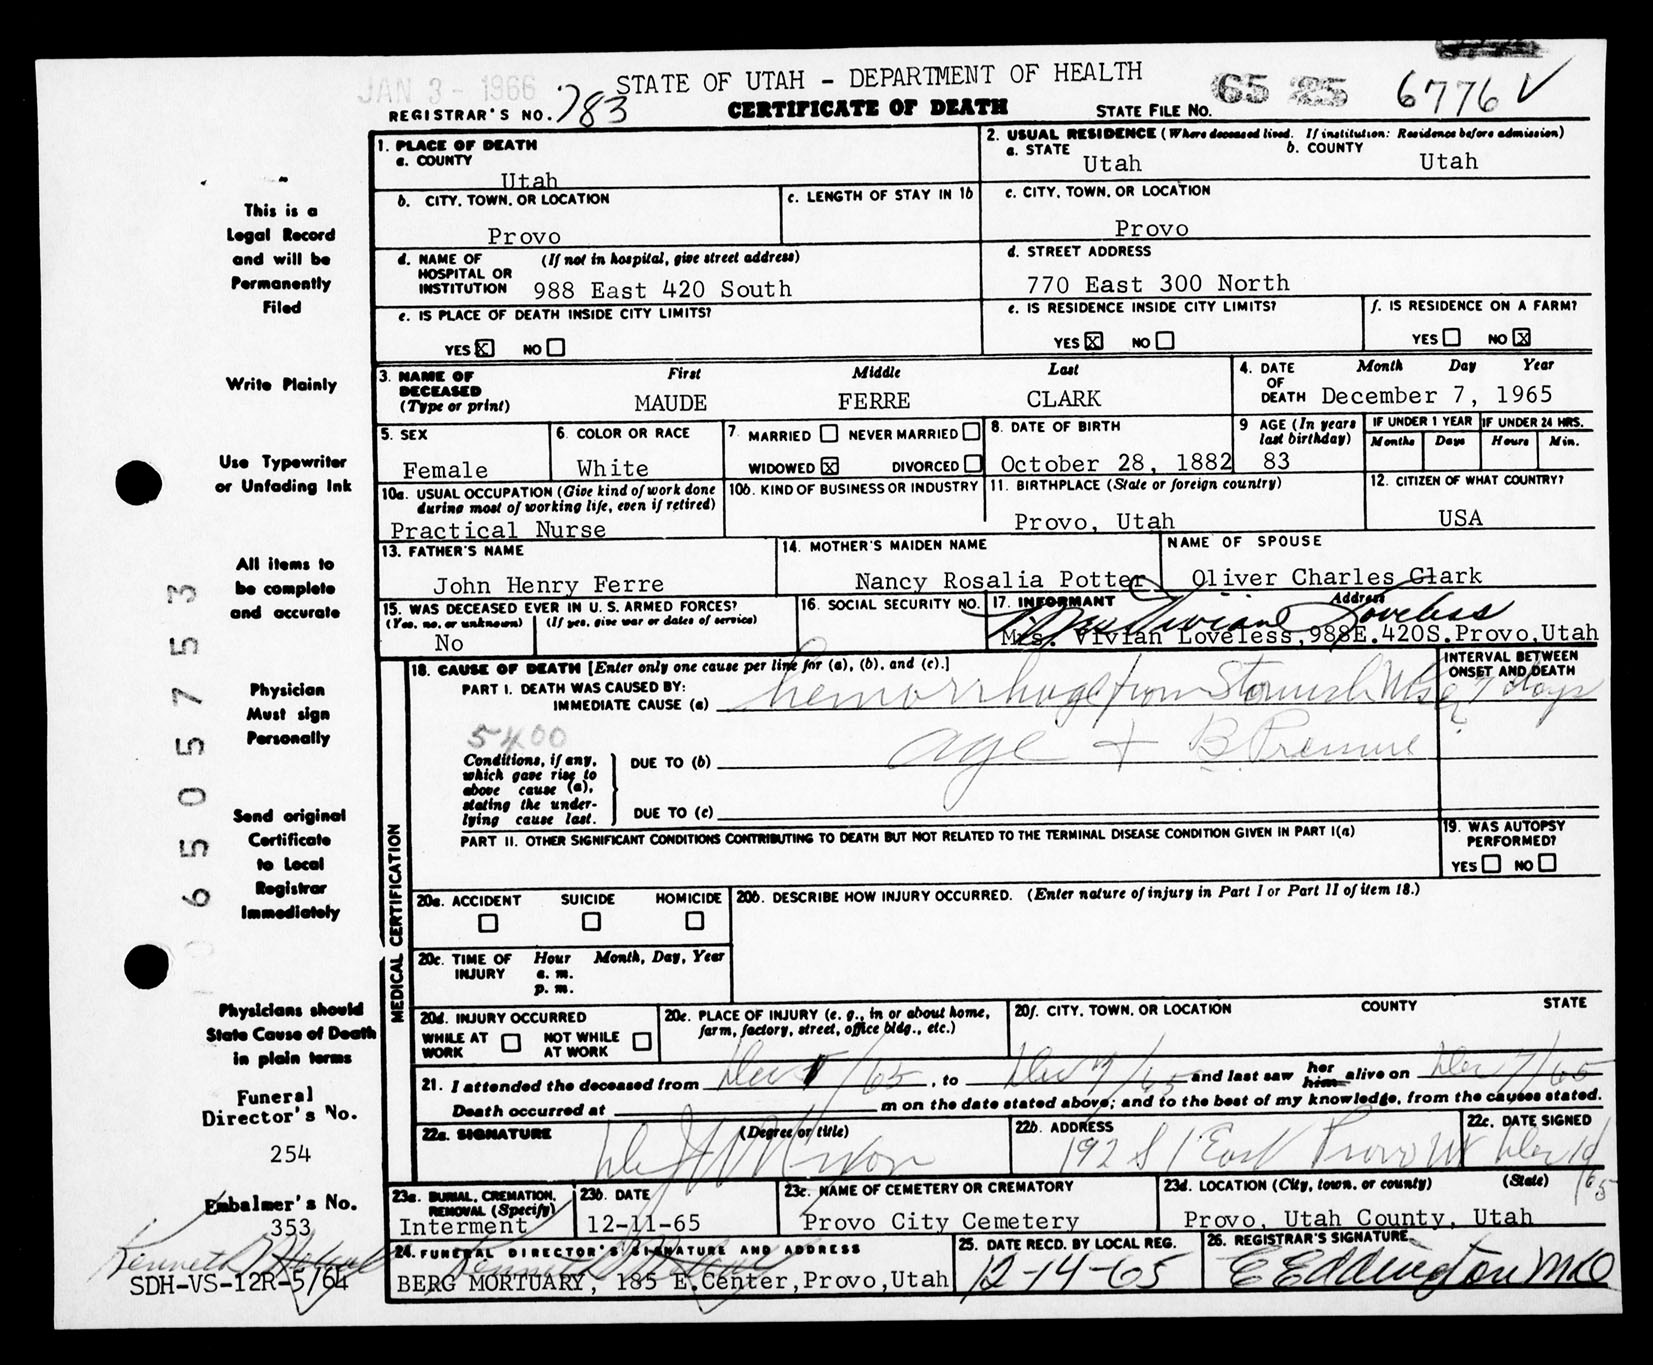 JAN 3 - 1966
STATE OF UTAH - DEPARTMENT OF HEALTH
65 25 6776 V
REGISTRAR'S NO. 783
CERTIFICATE OF DEATH
STATE FILE NO.
1. PLACE OF DEATH
a. COUNTY
Utah
2. USUAL RESIDENCE (Where deceased lived. If institution: Residence before admission)
a. STATE Utah
b. COUNTY Utah
b. CITY, TOWN, OR LOCATION
Provo
c. LENGTH OF STAY IN 1b
c. CITY, TOWN, OR LOCATION
Provo
d. NAME OF HOSPITAL OR INSTITUTION (If not in hospital, give street address)
988 East 420 South
d. STREET ADDRESS
770 East 300 North
e. IS PLACE OF DEATH INSIDE CITY LIMITS?
YES X NO
e. IS RESIDENCE INSIDE CITY LIMITS?
YES X NO
f. IS RESIDENCE ON A FARM?
YES NO X
3. NAME OF DECEASED (Type or print)
First Middle Last
MAUDE FERRE CLARK
4. DATE OF DEATH
Month Day Year
December 7, 1965
5. SEX
Female
6. COLOR OR RACE
White
7. MARRIED NEVER MARRIED
WIDOWED X DIVORCED
8. DATE OF BIRTH
October 28, 1882
9 AGE (In years last birthday)
83
IF UNDER 1 YEAR IF UNDER 24 HRS.
Months Days Hours Min.
10a. USUAL OCCUPATION (Give kind of work done during most of working life, even if retired)
Practical Nurse
10b. KIND OF BUSINESS OR INDUSTRY
11. BIRTHPLACE (State or foreign country)
Provo, Utah
12. CITIZEN OF WHAT COUNTRY?
USA
13. FATHER'S NAME
John Henry Ferre
14. MOTHER'S MAIDEN NAME
Nancy Rosalia Potter
NAME OF SPOUSE
Oliver Charles Clark
15. WAS DECEASED EVER IN U. S. ARMED FORCES?
(Yes, no, or unknown) (If yes, give war or dates of service)
No
16. SOCIAL SECURITY NO.
17. INFORMANT Address
Mrs Vivian Loveless
Mrs. Vivian Loveless, 988E. 420S. Provo, Utah
18. CAUSE OF DEATH [Enter only one cause per line for (a), (b), and (c).]
INTERVAL BETWEEN ONSET AND DEATH
PART I. DEATH WAS CAUSED BY:
IMMEDIATE CAUSE (a) hemorrhage from Stomach Ulcer 7 days
5400
age + B. Pressure
Conditions, if any, which gave rise to above cause (a), stating the underlying cause last.
DUE TO (b)
DUE TO (c)
PART II. OTHER SIGNIFICANT CONDITIONS CONTRIBUTING TO DEATH BUT NOT RELATED TO THE TERMINAL DISEASE CONDITION GIVEN IN PART I(a)
19. WAS AUTOPSY PERFORMED?
YES NO
MEDICAL CERTIFICATION
20a. ACCIDENT SUICIDE HOMICIDE
20b. DESCRIBE HOW INJURY OCCURRED. (Enter nature of injury in Part I or Part II of item 18.)
20c. TIME OF INJURY Hour Month, Day, Year
a. m.
p. m.
20d. INJURY OCCURRED
WHILE AT WORK NOT WHILE AT WORK
20e. PLACE OF INJURY (e. g., in or about home, farm, factory, street, office bldg., etc.)
20f. CITY, TOWN, OR LOCATION COUNTY STATE
21. I attended the deceased from Dec /65, to Dec 7/65 and last saw her him alive on Dec 7/65
Death occurred at m on the date stated above; and to the best of my knowledge, from the causes stated.
22a. SIGNATURE (Degree or title)
22b. ADDRESS
192 S 1 East Provo Ut
22c. DATE SIGNED
Dec 10 /65
23a. BURIAL, CREMATION, REMOVAL (Specify)
Interment
23b. DATE
12-11-65
23c. NAME OF CEMETERY OR CREMATORY
Provo City Cemetery
23d. LOCATION (City, town, or county) (State)
Provo, Utah County, Utah
24. FUNERAL DIRECTOR'S SIGNATURE AND ADDRESS
BERG MORTUARY, 185 E. Center, Provo, Utah
25. DATE RECD. BY LOCAL REG.
12-14-65
26. REGISTRAR'S SIGNATURE
E Eddington MD
This is a
Legal Record
and will be
Permanently
Filed
Write Plainly
Use Typewriter
or Unfading Ink
All items to
be complete
and accurate
Physician
Must sign
Personally
Send original
Certificate
to Local
Registrar
Immediately
Physicians should
State Cause of Death
in plain terms
Funeral
Director's No.
254
Embalmer's No.
353
SDH-VS-12R-5/64
06505753